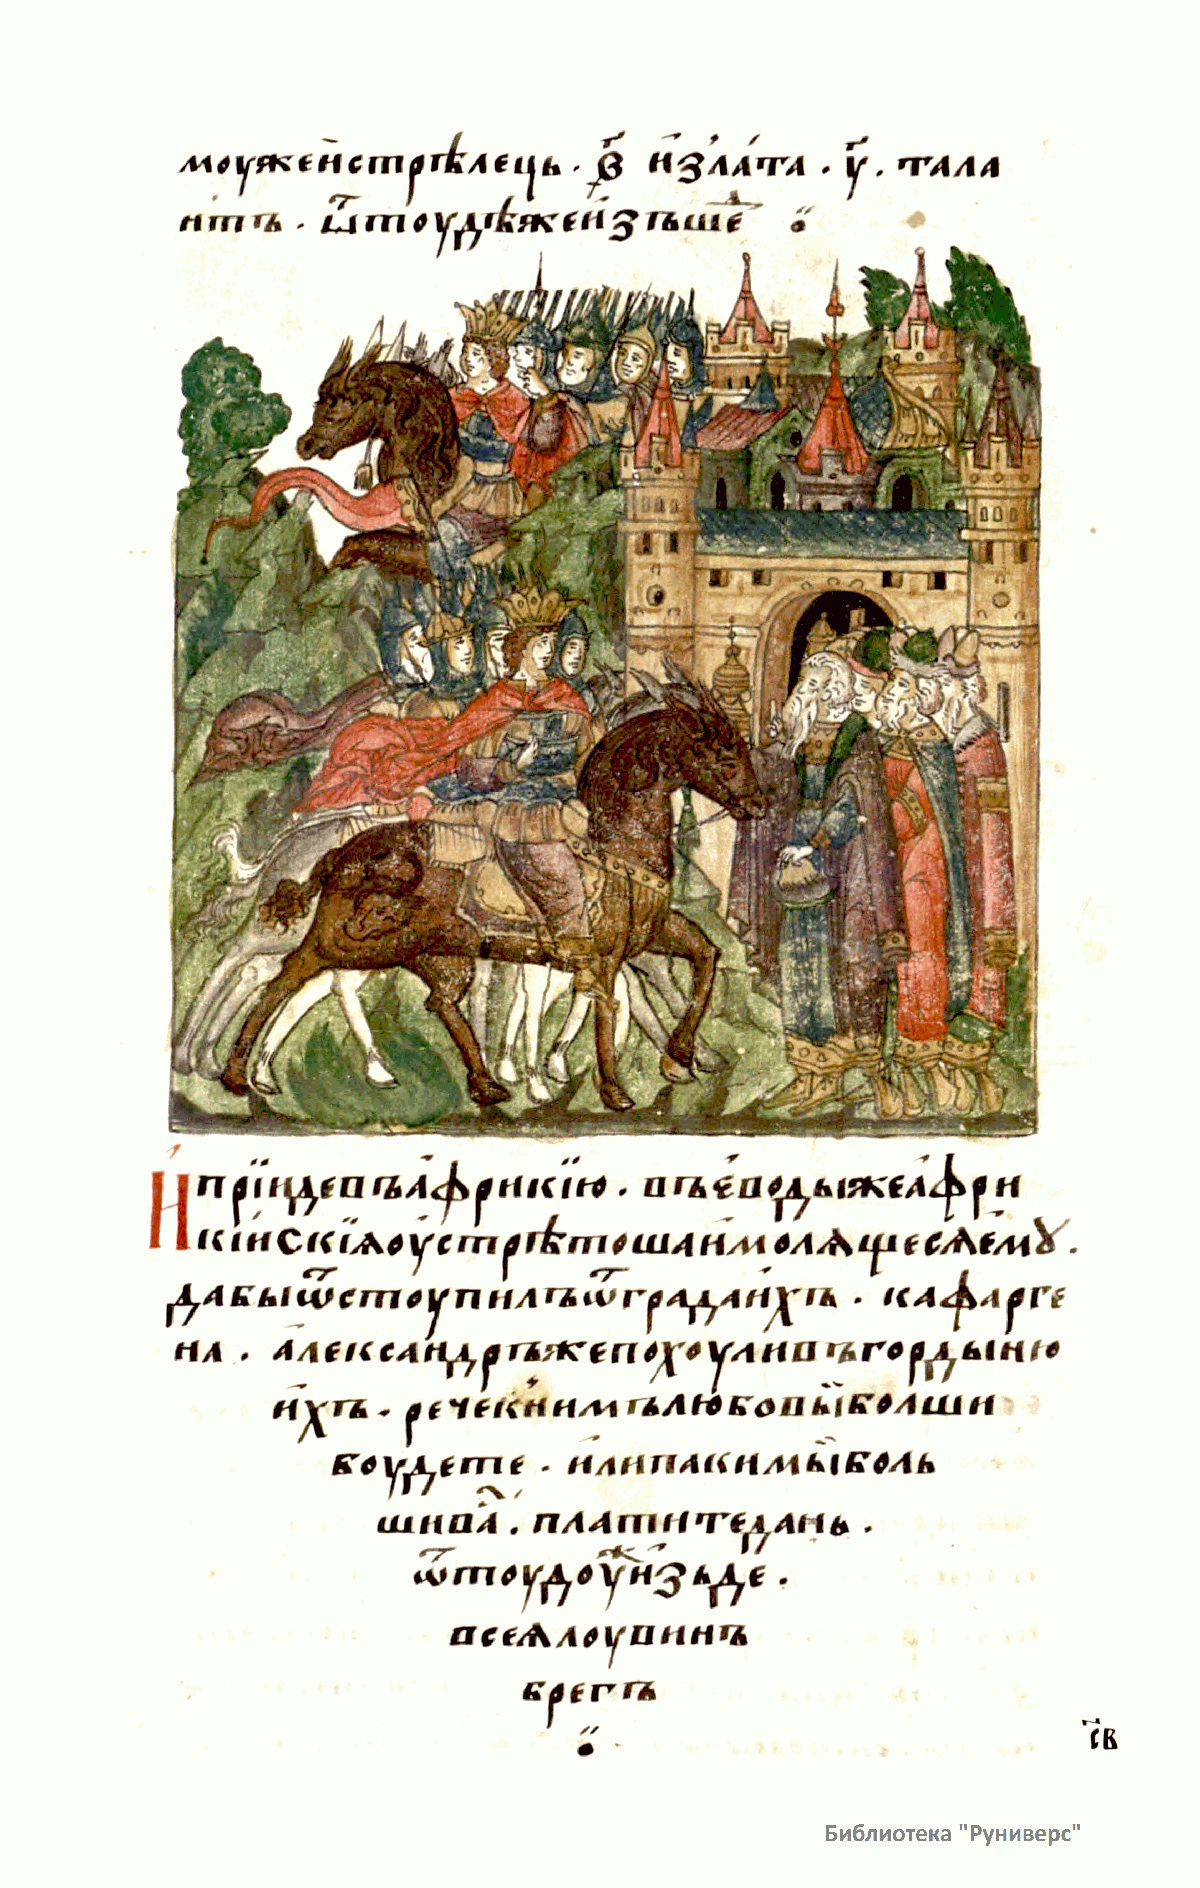 моужейстрѣлець · ҂в҃ и҆зла́та · у҃ · тала
нтъ · ѿтоудѣжеи҆зъше́д
И҆прїи́девъа҆фрикїю · въе҆водыжеа҆фри
кі́искїѧоу҆стрѣтошаи҆молѧщесѧе҆мꙋ ·
дабыѿстоупилъѿградаи҆хъ · кафарге
на · а҆леѯандръжепохоуливъгордыню
и҆хъ · речекни́мълюбовы̀болши
боудете · и҆липакимы̀боль
шива́л · платитедань ·
ѿтоудоуж́еи҆зьде ·
всеѧлоувинъ
брегъ
с҃в
Библиотека "Руниверс"